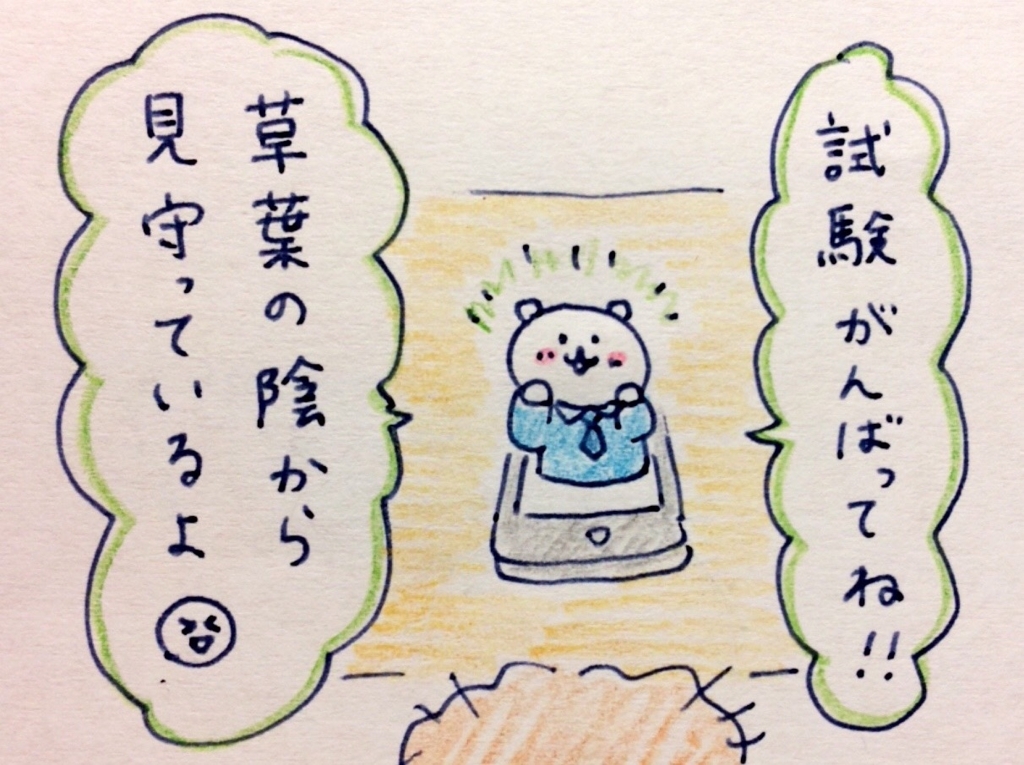 試験がんばってね!!
草葉の陰から
見守っているよ